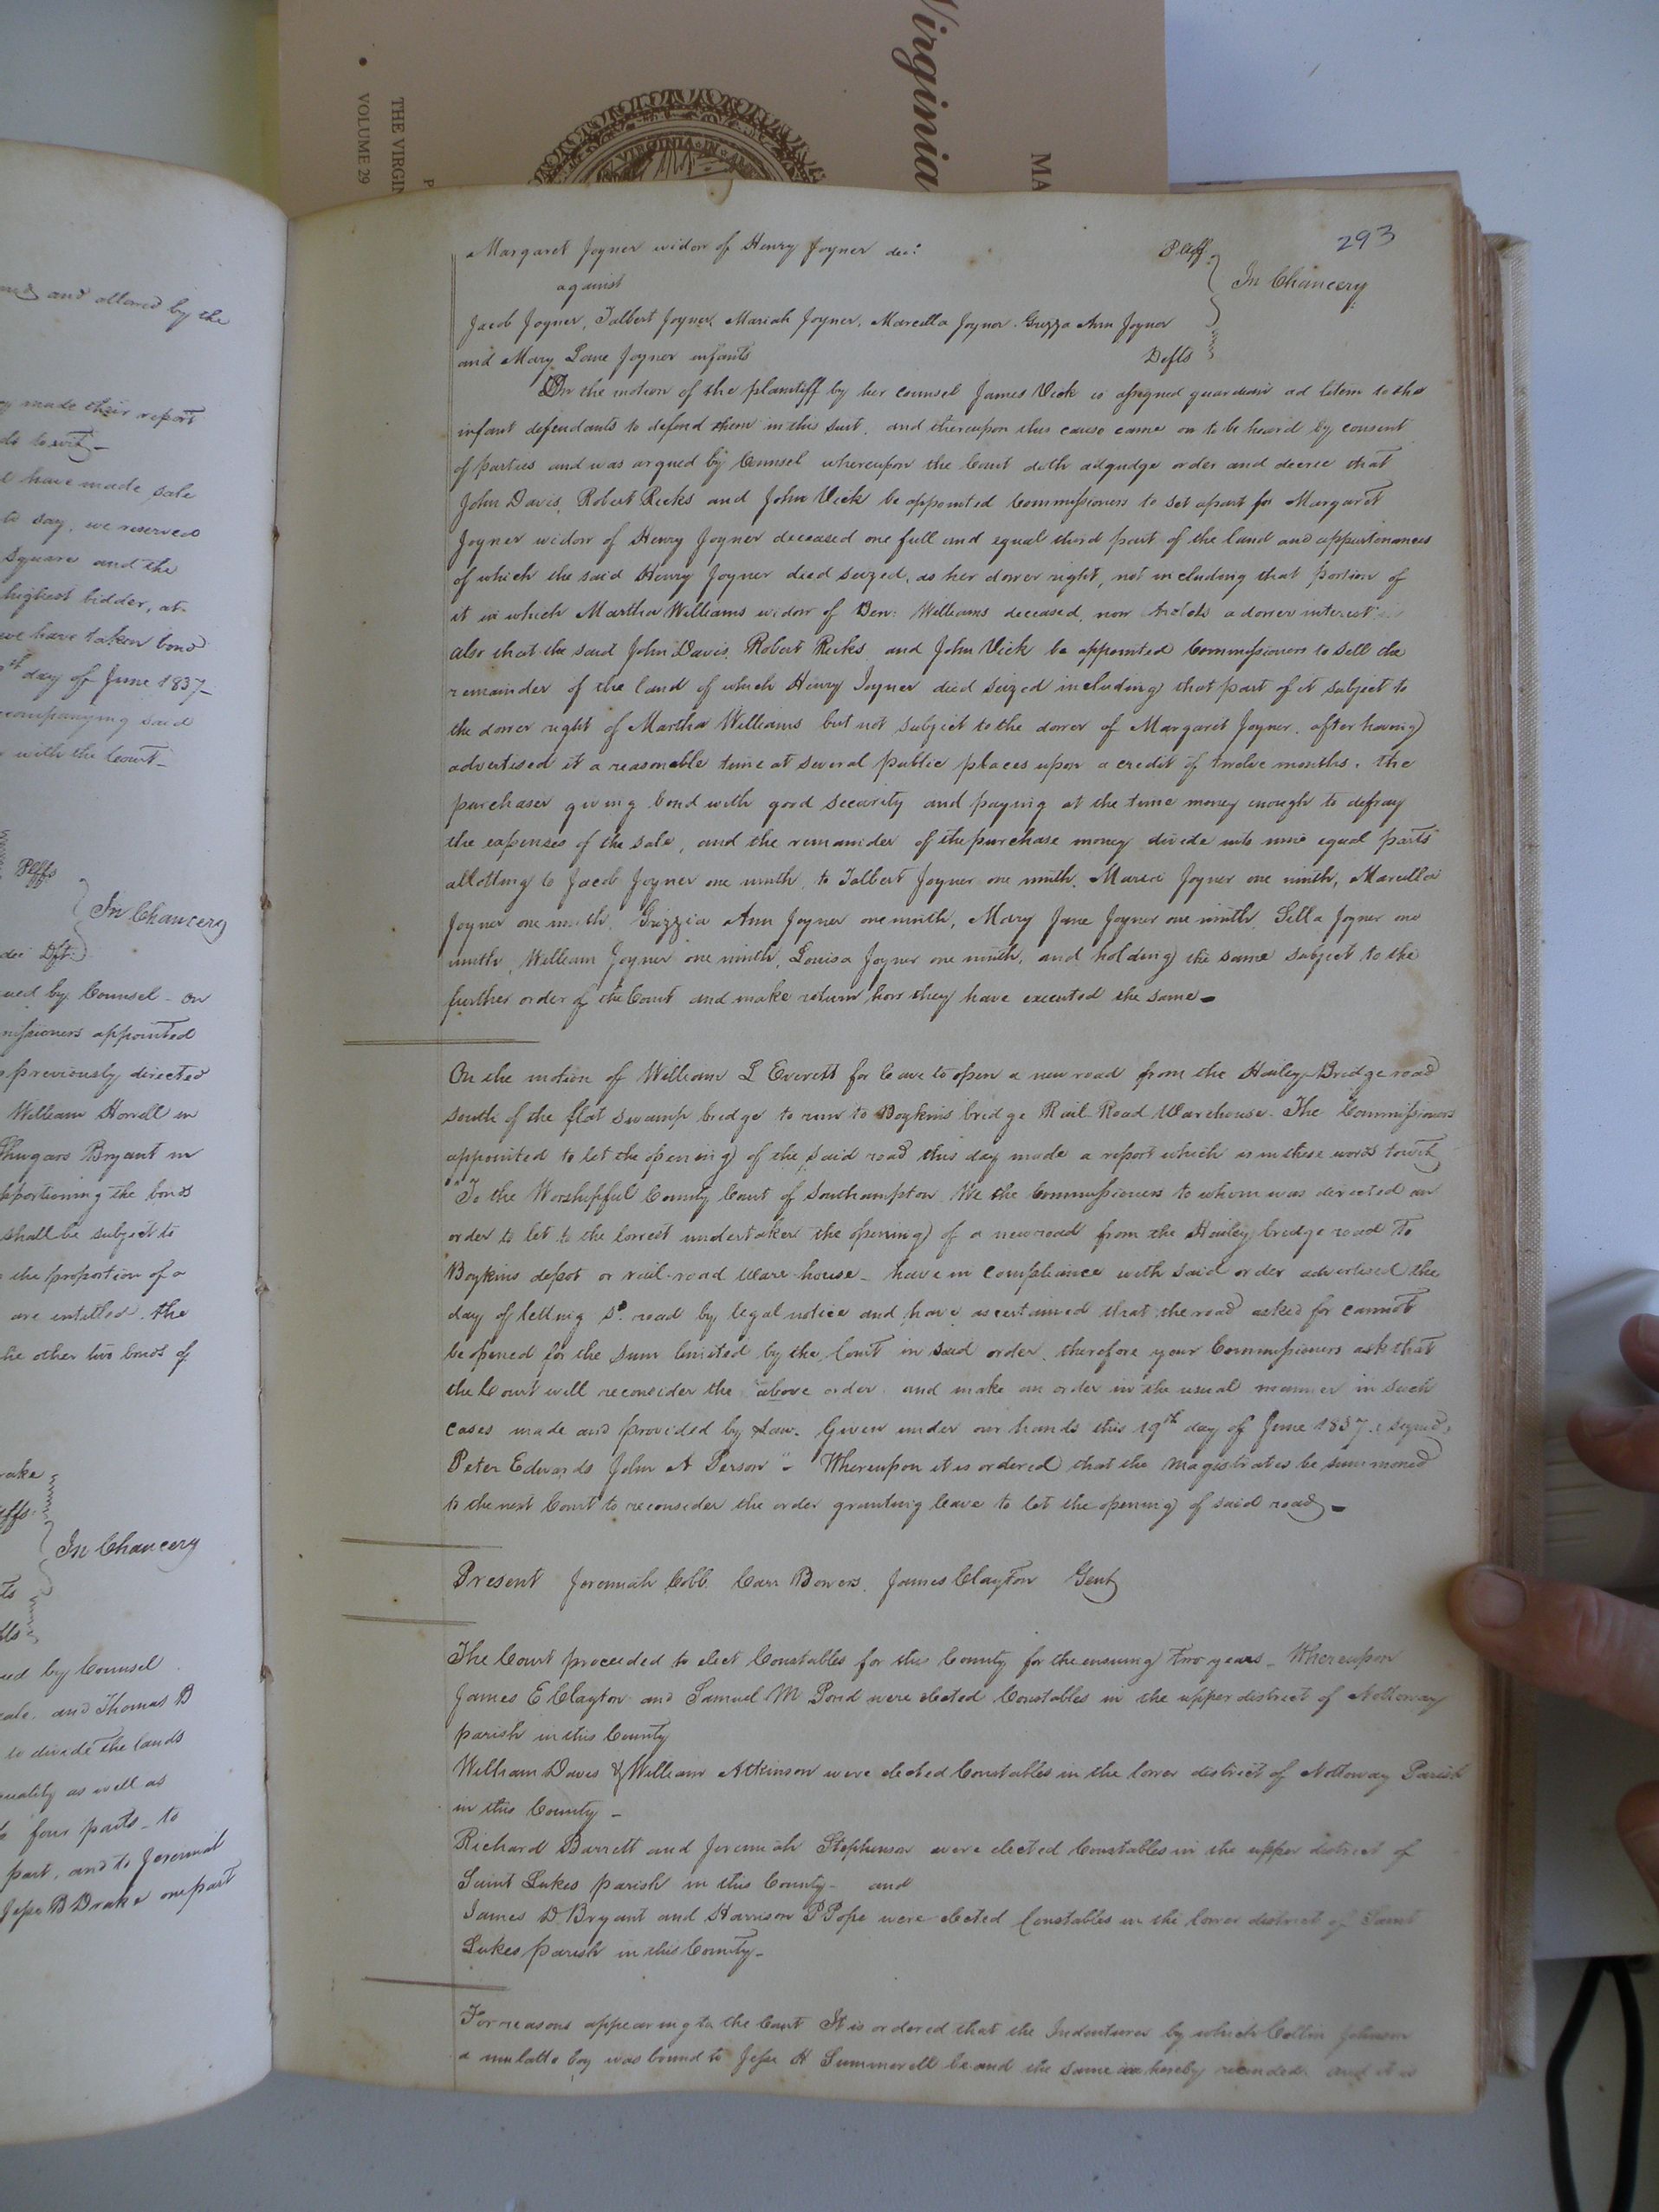 Virginia
MA
THE VIRGIN
VOLUME 29
P
VIRGINIA IN
and allowed by the
made their report
to wit -
have made sale
to say, we reserved
square and the
highest bidder, at
we have taken bond
day of June 1837 -
accompanying said
with the Court -
Plffs
In Chancery
Dft.
ued by Counsel - on
missioners appointed
previously directed
William Horrell in
Bryant in
apportioning the bonds
shall be subject to
the proportion of a
are entitled. the
he other two bonds of
rake
effs.
In Chancery
ts
fts
ued by Counsel
and Thomas B
to divide the lands
quality as well as
four parts - to
part, and to Jeremiah
Jesse B Drake one part
293
Margaret Joyner widow of Henry Joyner dec: Plff.
against
In Chancery
Jacob Joyner, Talbert Joyner, Mariah Joyner, Marcilla Joyner, Grizza Ann Joyner
and Mary Jane Joyner infants Defts
On the motion of the plaintiff by her counsel James Vick is assigned guardian ad litem to the
infant defendants to defend them in this suit. and thereupon this cause came on to be heard by consent
of parties and was argued by Counsel whereupon the Court doth adjudge order and decree that
John Davis, Robert Ricks and John Vick be appointed Commissioners to set apart for Margaret
Joyner widow of Henry Joyner deceased one full and equal third part of the land and appurtenances
of which the said Henry Joyner died seized, as her dower right, not including that portion of
it in which Martha Williams widow of Ben: Williams deceased, now holds a dower interest
also that the said John Davis, Robert Ricks and John Vick be appointed Commissioners to sell the
remainder of the land of which Henry Joyner died seized including that part of it subject to
the dower right of Martha Williams but not subject to the dower of Margaret Joyner, after having
advertised it a reasonable time at several public places upon a credit of twelve months, the
purchaser giving bond with good security and paying at the time money enough to defray
the expenses of the sale, and the remainder of the purchase money divide into nine equal parts
allotting to Jacob Joyner one ninth, to Talbert Joyner one ninth, Joyner one ninth, Marcilla
Joyner one ninth, Grizzia Ann Joyner one ninth, Mary Jane Joyner one ninth, Silla Joyner one
ninth, William Joyner one ninth, Louisa Joyner one ninth, and holding the same subject to the
further order of the Court and make return how they have executed the same -
On the motion of William L Everett for leave to open a new road from the Hailey Bridge road
south of the flat swamp bridge to run to Boykins bridge Rail Road Warehouse. The Commissioners
appointed to let the opening of the said road this day made a report which is in these words towit
"To the Worshipful County Court of Southampton We the Commissioners to whom was directed an
order to let to the lowest undertaker the opening of a new road from the Hailey bridge road to
Boykins depot or rail-road Ware-house - have in compliance with said order advertised the
day of letting sd. road by legal notice and have ascertained that the road asked for cannot
be opened for the sum limited by the Court in said order. therefore your Commissioners ask that
the Court will reconsider the above order and make an order in the usual manner in such
cases made and provided by Law. Given under our hands this 19th day of June 1837. (signed)
Peter Edwards John A Person" - Whereupon it is ordered that the magistrates be summoned
to the next Court to reconsider the order granting leave to let the opening of said road -
Present Jeremiah Cobb, Carr Bowers, James Clayton Gent
The Court proceeded to elect Constables for this County for the ensuing two years - Whereupon
James E Clayton and Samuel M Pond were elected Constables in the upper district of Nottoway
parish in this County
William Davis & William Atkinson were elected Constables in the lower district of Nottoway Parish
in this County -
Richard Barrett and Jeremiah Stephenson were elected Constables in the upper district of
Saint Lukes parish in this County - and
James D. Bryant and Harrison P Pope were elected Constables in the lower district of Saint
Lukes parish in this County -
For reasons appearing to the Court It is ordered that the Indentures by which Collin Johnson
a mulatto boy was bound to Jesse H Summerell be and the same are hereby rescinded and it is